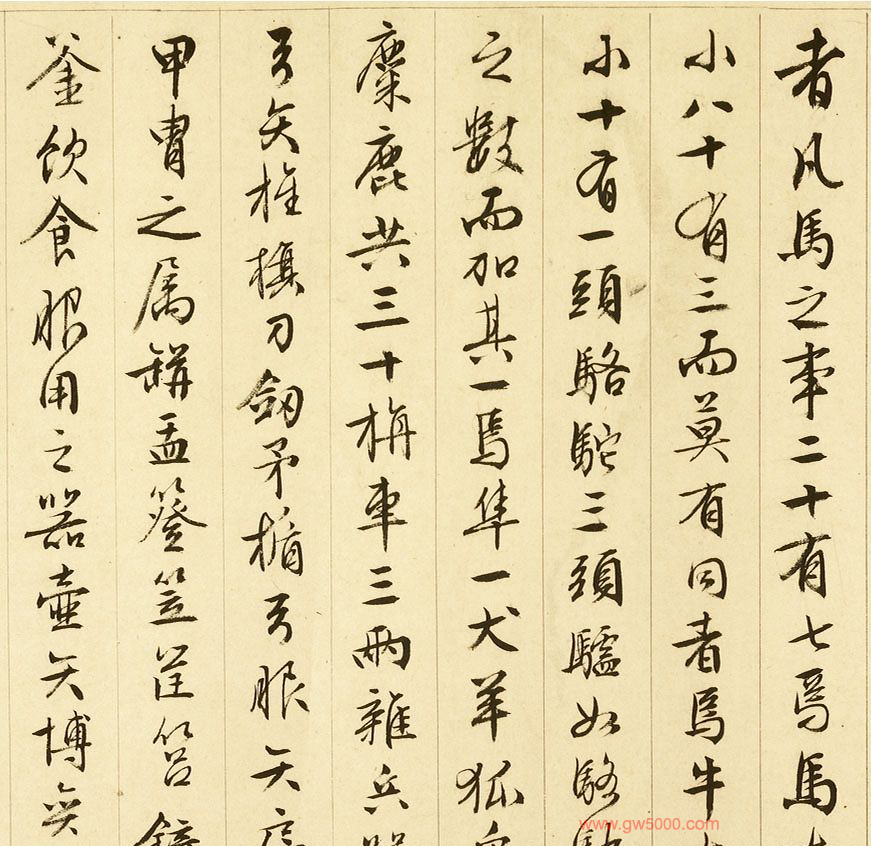 者凡馬之事二十有七焉馬
小八十有三而莫有同者焉牛
小十有一頭駱駝三頭驢如駱
之數而加其一焉隼一犬羊狐
麋鹿共三十旃車三兩雜兵
弓矢旌旗刀劒矛楯弓服矢
甲冑之属缾盂簦笠筐筥
釜飲食服用之器壺矢博奕
www.gw5000.com